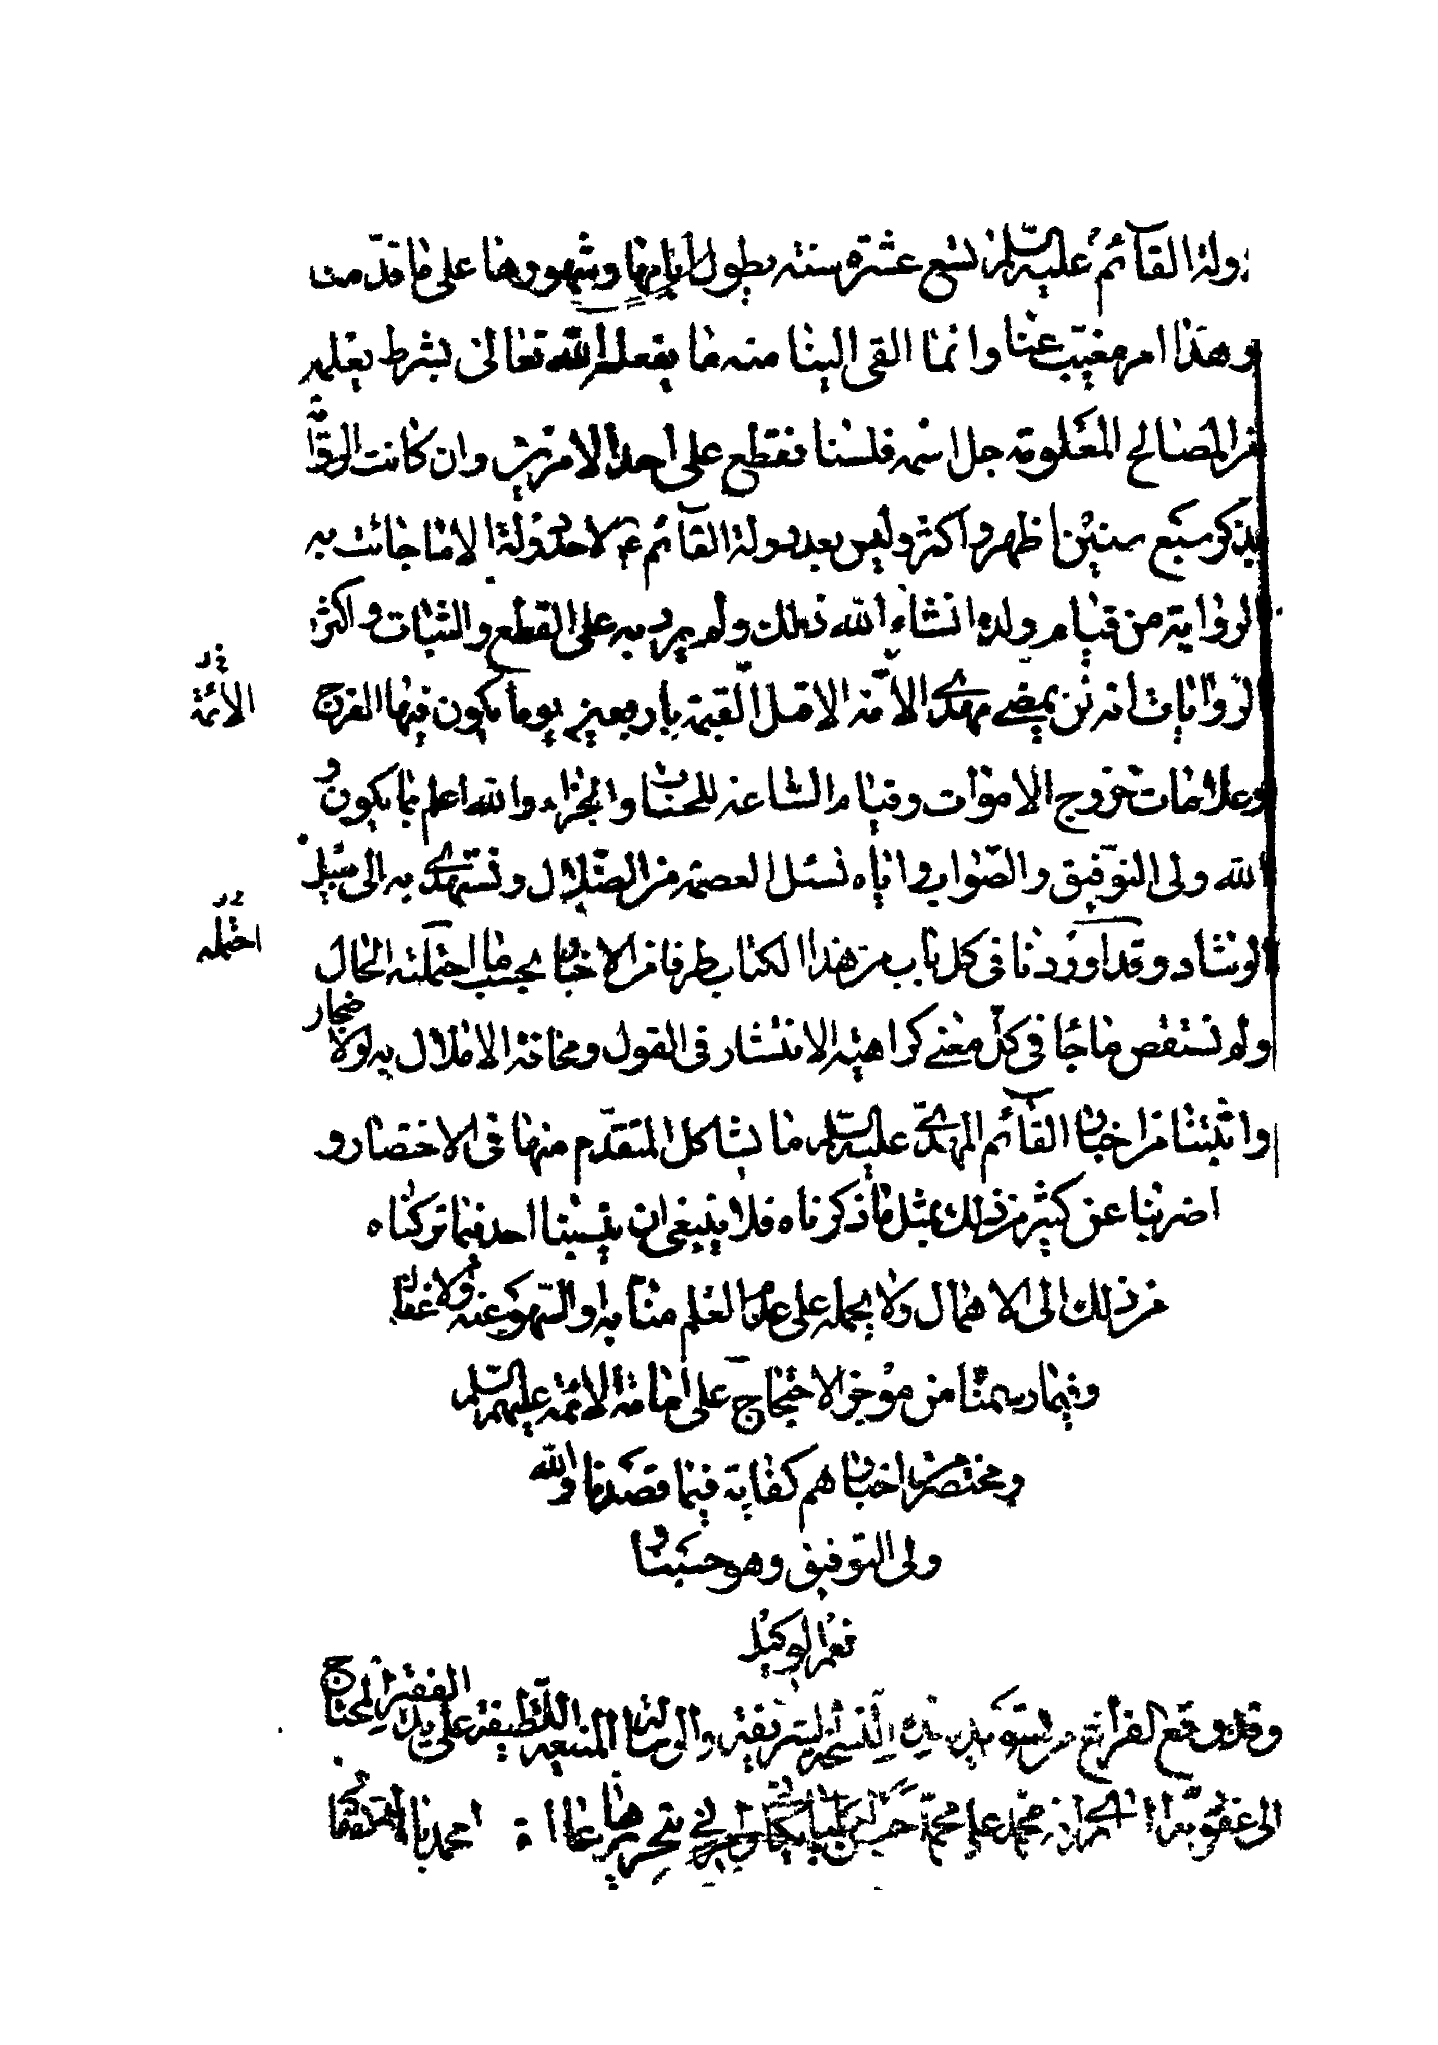 دولة القآئم عليه السلم تسع عشرة سنة يطول ايامها وشهورها على ما قدمت
وهذا امر مغيب عنا وانما القى الينا منه ما يفعله الله تعالى بشرط يعلمه
من المصالح المعلومة جل اسمه فلسنا نقطع على احد الامرين وان كانت الرواية
يذكر سبع سنين اظهر واكثر وليس بعد دولة القآئم ع لاحد دولة الا ما جائت به
الرواية من قيام ولده انشاء الله ذلك ولم يرد به على القطع والثبات واكثر
الروايات انه لن يمضى مهدى الامة الا قبل القيمة باربعين يوما يكون فيها الفرج
الائمة
وعلامات خروج الاموات وقيام الساعة للحساب والجزاء والله اعلم بما يكون و
الله ولى التوفيق والصواب واياه نسئل العصمة من الضلال ونستهدى به الى سبيل
الرشاد وقد اوردنا فى كل باب من هذا الكتاب طرفا من الاخبار بحسب ما احتملته الحال
احتمله
ولم نستقص ما جا فى كل معنى كراهية الانتشار فى القول ومخافة الاملال به والاضجار
واثبتنا من اخبار القآئم المهدى عليه السلم ما يشاكل المتقدم منها فى الاختصار و
اضربنا عن كثير من ذلك بمثل ما ذكرناه فلا ينبغى ان ينسبنا احد فيما تركناه
من ذلك الى الاهمال ولا يحمله على عدم العلم منا به او السهو عنه والاغفال
وفيما رسمنا من موجز الاحتجاج على امامة الائمة عليهم السلم
ومختصر من اخبارهم كفاية فيما قصدنا والله
ولى التوفيق وهو حسبنا و
نعم الوكيل
وقد وقع الفراغ من تسويد هذه النسخة الشريفة والرسالة المنيعة اللطيفة على يد الفقير المحتاج
الى عفو محمد على محمد فى تحريرها